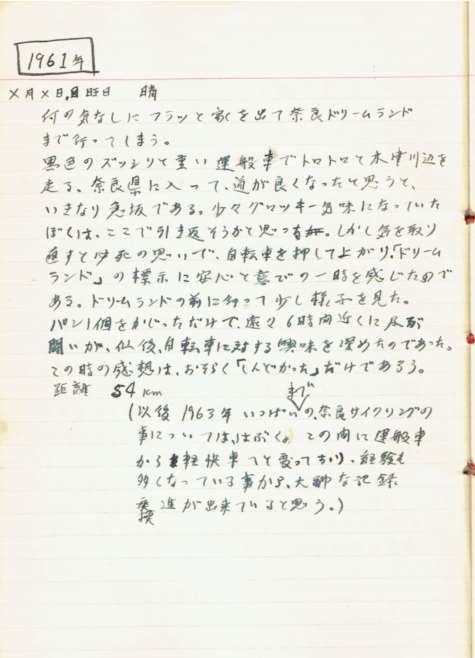 1961年
×月×日,日曜日 晴
何の気なしにフラッと家を出て奈良ドリームランド
まで行ってしまう。
黒色のズッシリと重い運搬車でトロトロと木津川辺を
走る、奈良県に入って、道が良くなったと思うと、
いきなり急坂である。少々グロッキー気味になっていた
ぼくは、ここで引き返そうかと思った しかし気を取り
直すと必死の思いで、自転車を押して上がり、「ドリーム
ランド」の標示に安心と喜びの一時を感じたので
ある。ドリームランドの前に行って少し様子を見た。
パン1個をかじっただけで、延々6時間近くに及ぶ
闘いが、以後、自転車に対する興味を深めたのであった。
この時の感想は、おそらく「しんどかった」だけであろう。
距離 54km
(以後1963年いっぱいまでの、奈良サイクリングの
事については、はぶく。この間に運搬車
から軽快車へと変っており、経験も
多くなっている事から、大幅な記録
進が出来ていると思う。)